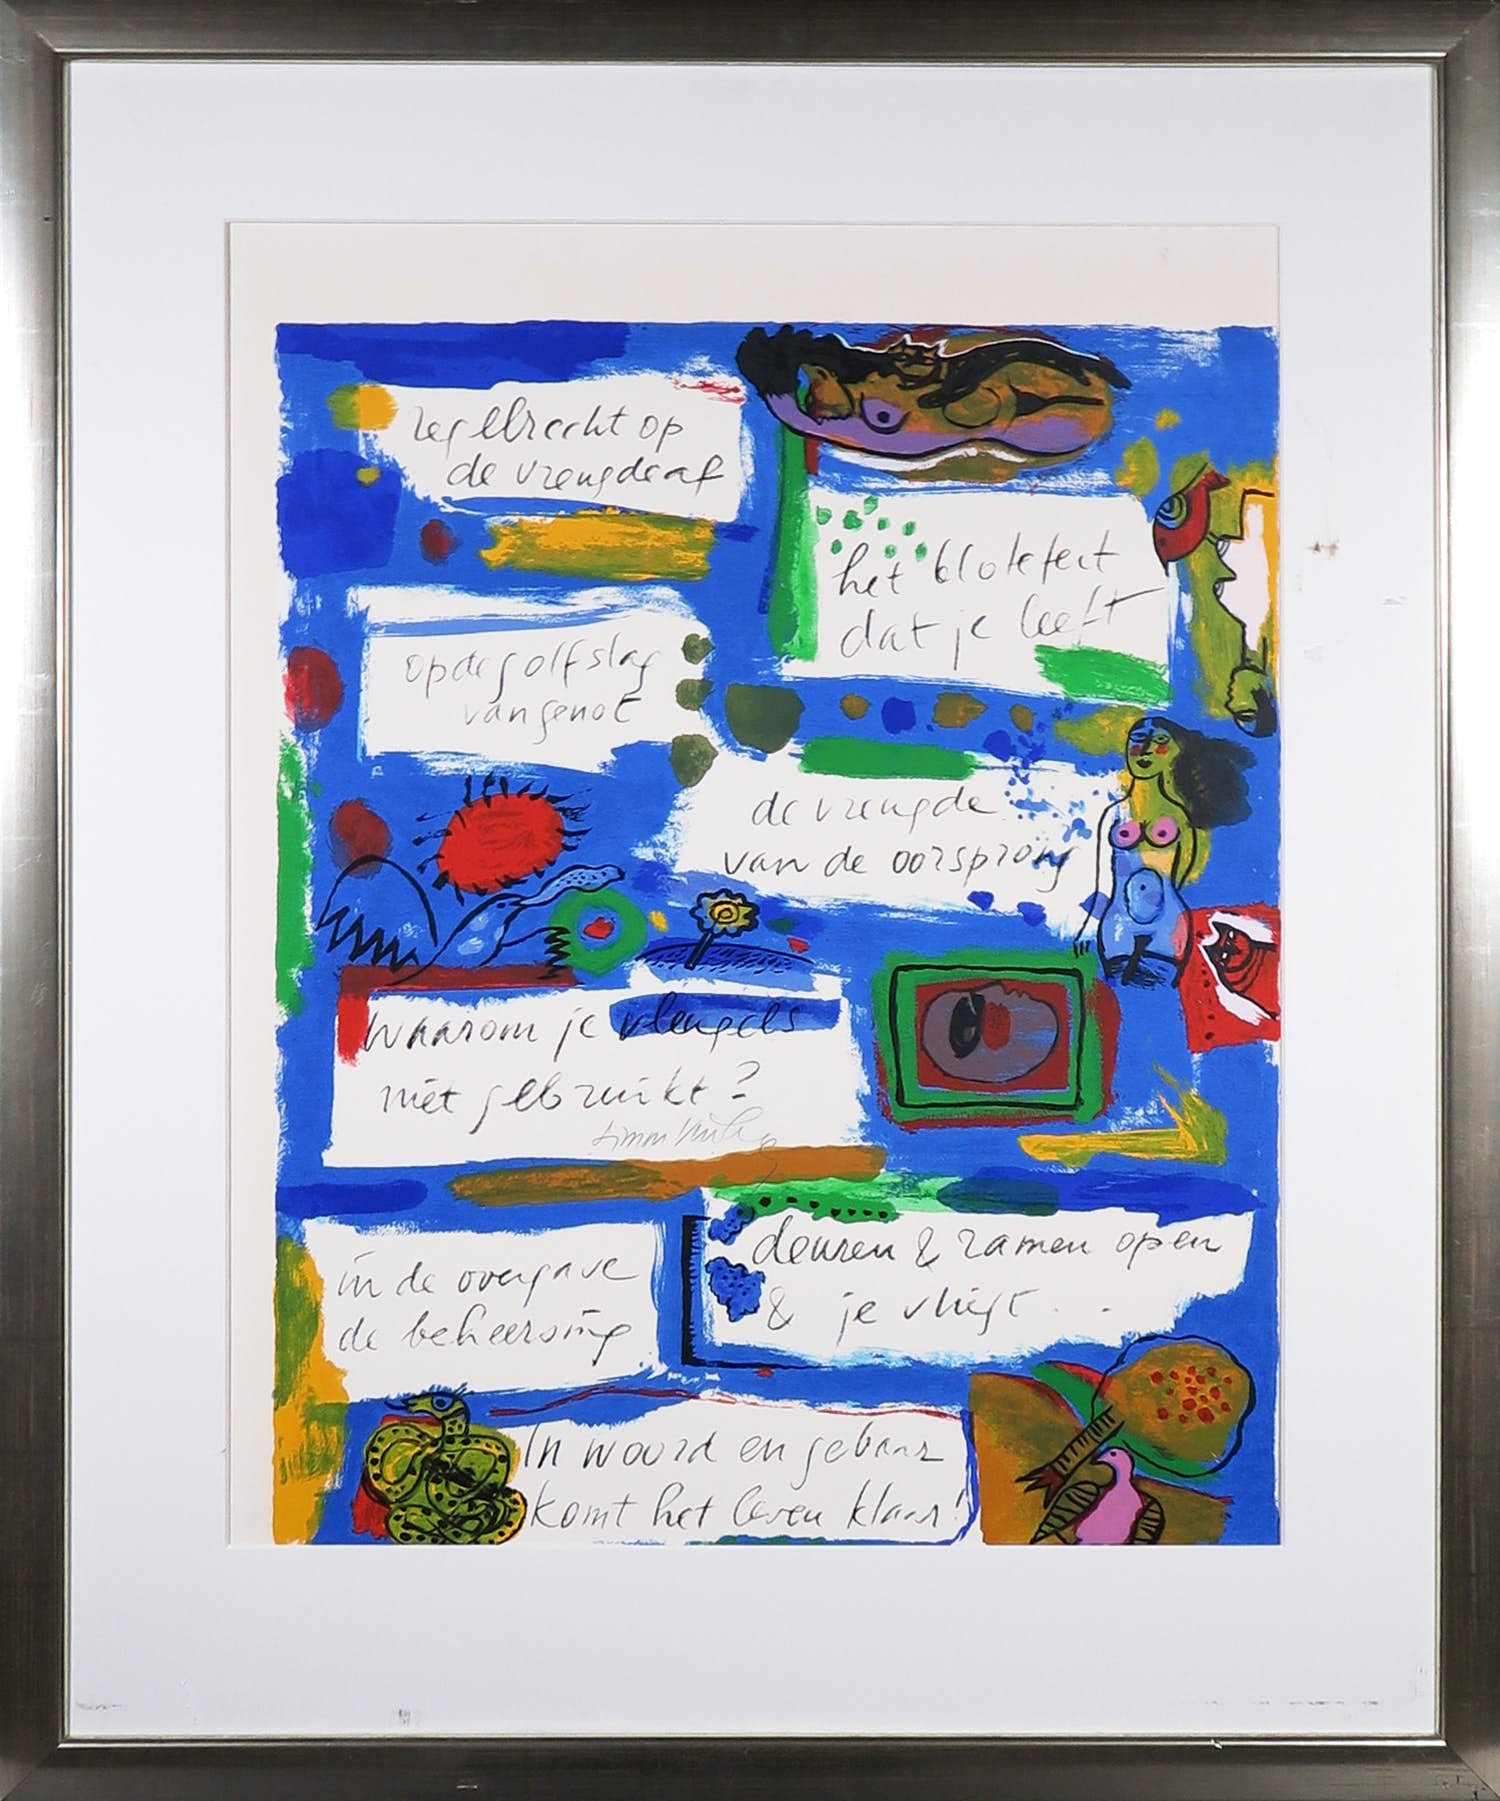 regelrecht op
de vreugde af
het blote feit
dat je leeft
op de golfslag
van genot
de vreugde
van de oorsprong
waarom je vleugels
niet gebruikt?
Simon Vinkenoog
in de overgave
de beheersing
deuren & ramen open
& je vliegt . . .
In woord en gebaar
komt het leven klaar!